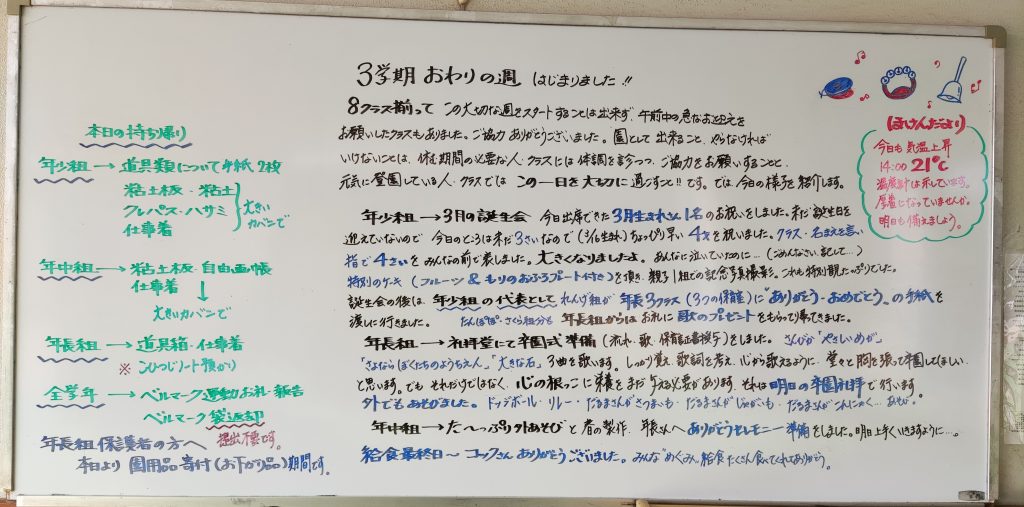 3学期 おわりの週 はじまりました!!
8クラス揃って この大切な週をスタートすることは出来ず、午前中の急なお迎えを
お願いしたクラスもありました。ご協力 ありがとうございました。園として 出来ること、やらなければ
いけないことは、休む期間の必要な人・クラスには 体調を診つつ、ご協力をお願いすることと、
元気に登園している人・クラスでは この一日を大切に 過ごすこと!!です。では、今日の様子を紹介します。
年少組→3月の誕生会 今日出席できた 3月生まれさん1名のお祝いをしました。未だ誕生日を
迎えていないので 今日のところは未だ3さいなので(3/16生まれ)ちょっぴり早い 4才を祝いました。クラス・名まえを言い
指で4さいをみんなの前で表しました。大きくなりましたよ。あんなに泣いていたのに…(ごめんなさい、記して…)
特別のケーキ(フルーツ&もりのおふろプレート付き)を頂き、親子1組での記念写真撮影。これも特別観たっぷりでした。
誕生会の後は、年少組の代表として れんげ組が 年長3クラス(3つの保育室)に“ありがとう・おめでとう”の手紙を
渡しに行きました。 たんぽぽ・さくら組分も 年長組からはお礼に 歌のプレゼントをもらって帰ってきました。
年長組→礼拝堂にて卒園式準備(流れ・歌・保育証書授与)をしました。 さんびか「やさしいめが」
「さよならぼくたちのようちえん」「大きな石」3曲を歌います。しっかり覚え、歌詞を考え、心から歌えるように 堂々と胸を張って卒園してほしい
と思います。でも それだけではなく、心の根っこに栄養をまだ与える必要があります。それは明日の卒園礼拝で行います。
外でもあそびました。ドッジボール・リレー・だるまさんがさつまいも・だるまさんがじゃがいも・だるまさんがこんにゃく…あそび。
年中組→た〜っぷり外あそびと 春の製作、年長さんへ ありがとうセレモニー準備をしました。明日上手くいきますように…。
給食最終日〜 コックさん ありがとうございました。みんな“めぐみ”給食たくさん食べてくれてありがとう。
本日の持ち帰り
年少組→道具類について手紙2枚
粘土板・粘土
クレパス・ハサミ
仕事着
大きい
カバンで
年中組→粘土板・自由画帳
仕事着
↓
大きいカバンで
年長組→道具箱・仕事着
※こひつじノート預かり
全学年→ベルマーク運動お礼・報告
ベルマーク袋返却
提出不要です。
年長組保護者の方へ
本日より 園用品寄付(お下がり品)期間です。
ほけんだより
今日も気温上昇
14:00 21℃
温度計は示しています。
厚着になっていませんか。
明日も備えましょう。